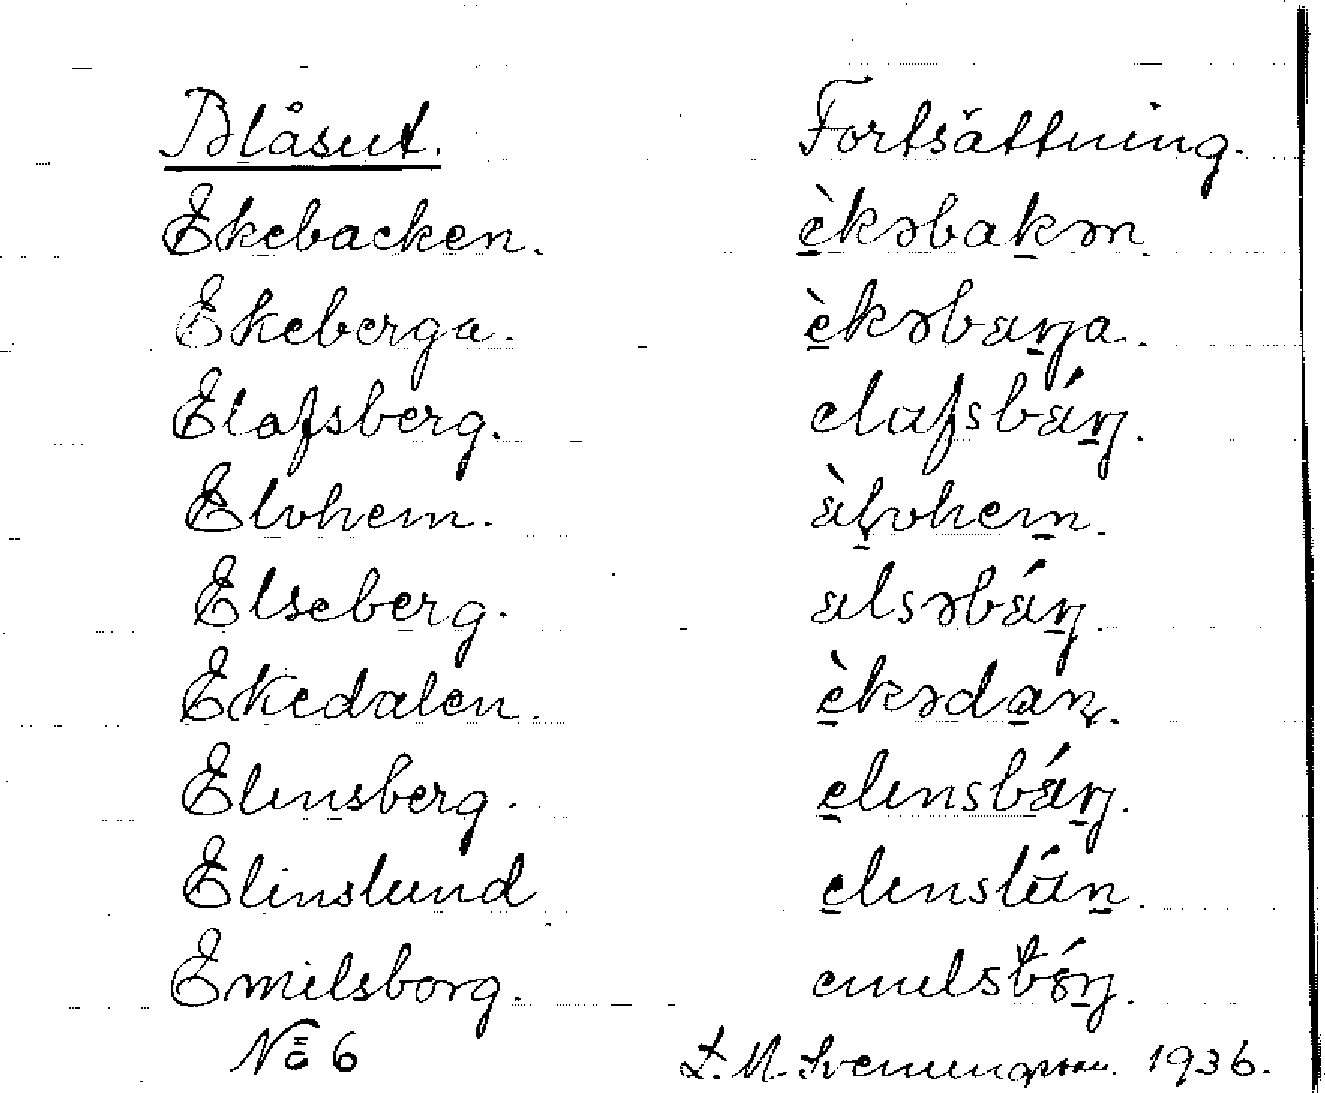 Blåsut. Fortsättning.
Ekebacken. èkəbakən.
Ekeberga. èkəbærja.
Elafsberg. elafsbǽrj.
Elvhem. æ̀lvhem.
Elseberg. ælsəbǽrj.
Ekedalen. èkədan.
Elinsberg. elinsbǽrj.
Elinslund elinslún.
Emilsborg. emilsbórj.
No 6 L. M. Svenungsson. 1936.